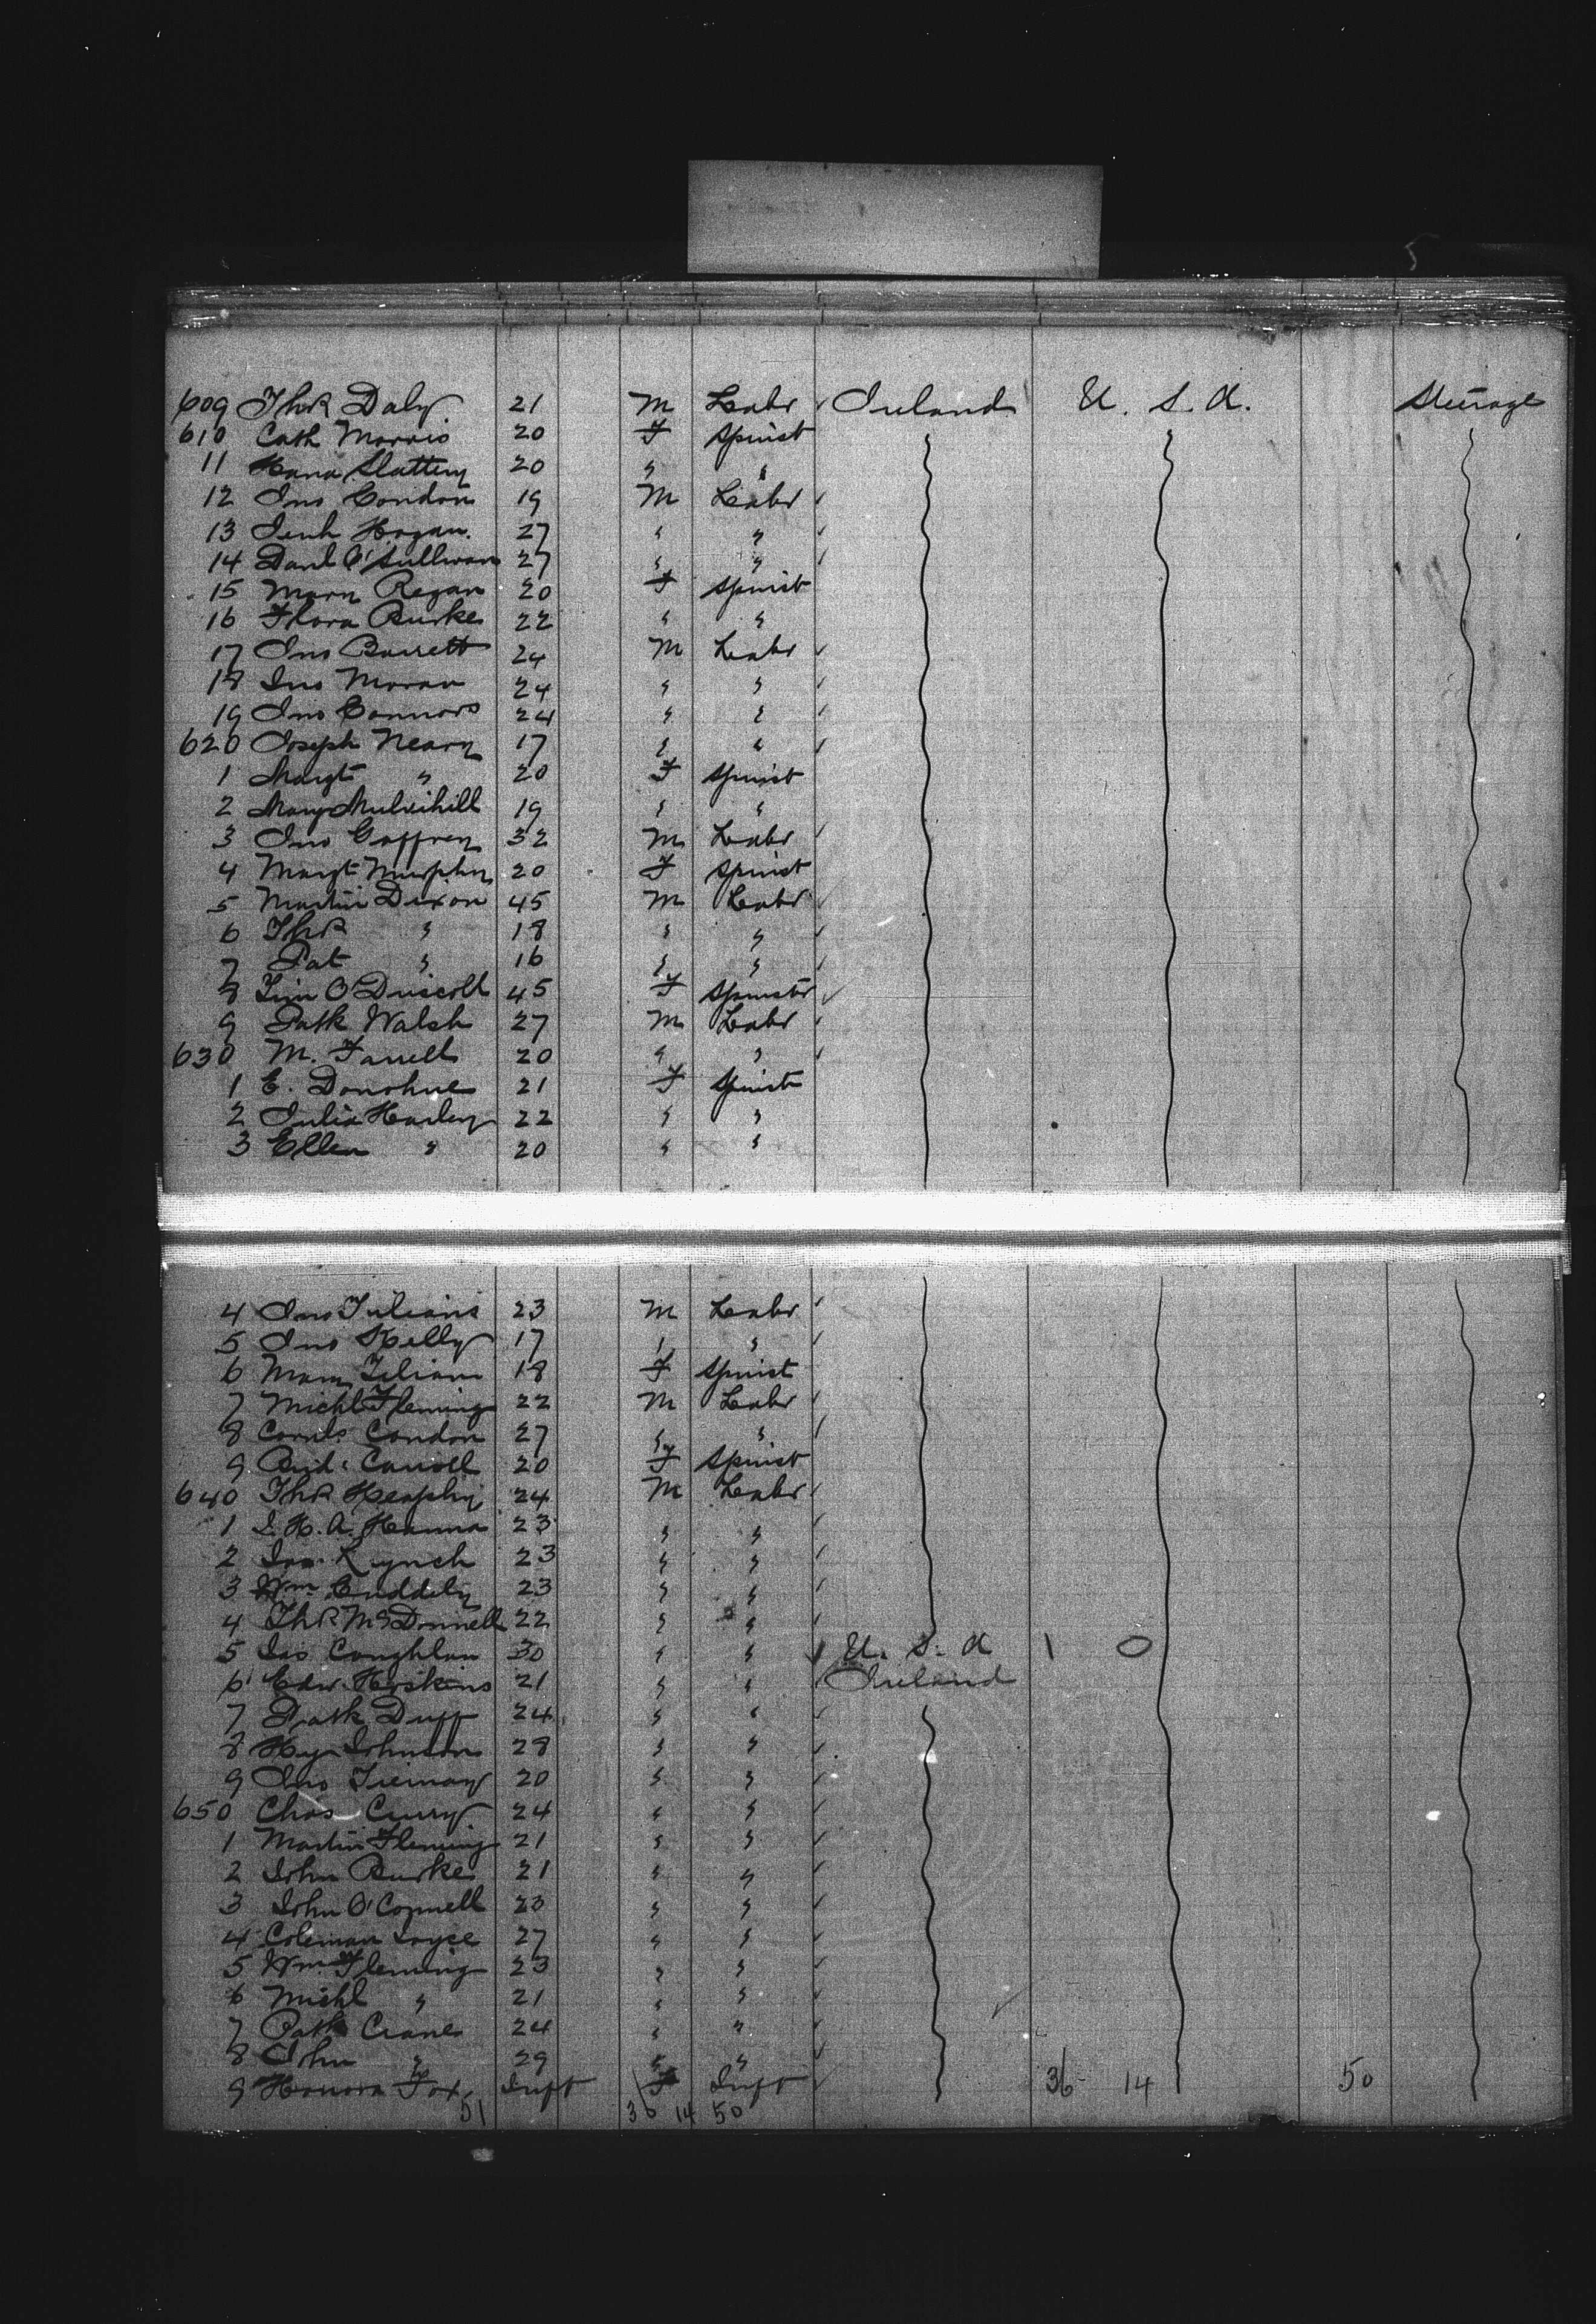 5
609 Thos Daly 21 M Labr Ireland U. S. A. Steerage
610 Cath Morris 20 F Spinst
11 Hana Slattery 20 " "
12 Jno Condon 19 M Labr
13 Hogan. 27 " "
14 Danl O'Sullivan 27 " "
15 Mary Regan 20 F Spinst
16 Burke 22 " "
17 Jno Barrett 24 M Labr
18 Jno Moran 24 " "
19 Jno Connors 24 " "
620 Joseph Neary 17 " "
1 Margt " 20 F Spinst
2 Mary Mulvihill 19 " "
3 Jno Gaffney 32 M Labr
4 Margt Murphy 20 F Spinst
5 Martin Dixon 45 M Labr
6 Thos " 18 " "
7 Pat " 16 " "
8 O'Driscoll 45 F Spinster
9 Patk Walsh 27 M Labr
630 M. Farrell 20 " "
1 E. Donohue 21 F Spinst
2 Julia Hurley 22 " "
3 Ellen " 20 " "
4 Jno 23 M Labr
5 Jno Kelly 17 " "
6 Mary 18 F Spinst
7 Michl Fleming 22 M Labr
8 Cornls Condon 27 " "
9 Brid. Carroll 20 F Spinst
640 Thos Heaphy 24 M Labr
1 H. A. Hanna 23 " "
2 Jas. Lynch 23 " "
3 Wm Cuddihy 23 " "
4 Thos McDonnell 22 " "
5 Jas Coughlan 30 " " U. S. A 1 0
6 Edw. Hoskins 21 " " Ireland
7 Patk Duff 24 " "
8 Hy Johnson 28 " "
9 Jno Tiernay 20 " "
650 Chas Curry 24 " "
1 Martin Fleming 21 " "
2 John Burke 21 " "
3 John O'Connell 23 " "
4 Coleman Joyce 27 " "
5 Wm Fleming 23 " "
6 Michl " 21 " "
7 Patk Crane 24 " "
8 John " 29 " "
9 Honora Fox Inft F Inft 36 14 50
51 36 14 50